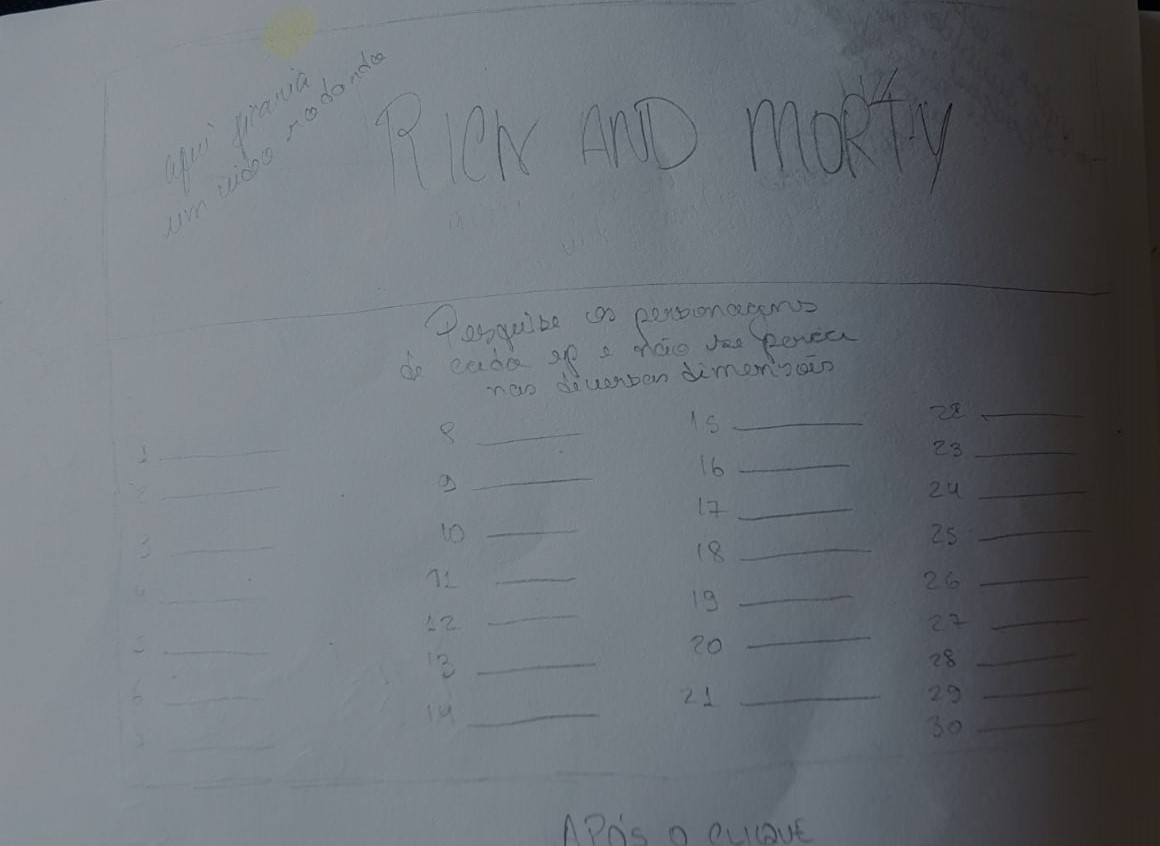 aqui ficaria
um video rodando
RICK AND MORTY
Pesquise os personagens
de cada ep e não se perca
nas diversas dimensões
1
2
3
4
5
6
7
8
9
10
11
12
13
14
15
16
17
18
19
20
21
22
23
24
25
26
27
28
29
30
APÓS O CLIQUE